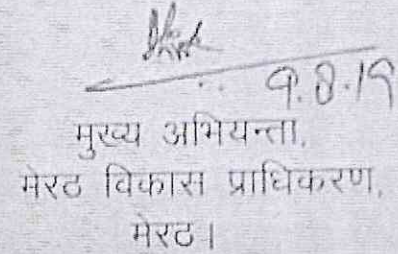 9.8.19
मुख्य अभियन्ता,
मेरठ विकास प्राधिकरण,
मेरठ।